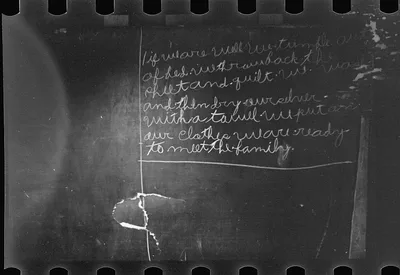 if we are well we tumble out
of bed. we throw back the
sheet and quilt. we wash
and then dry ourselves
with a towel we put on
our clothes we are ready
to meet the family.